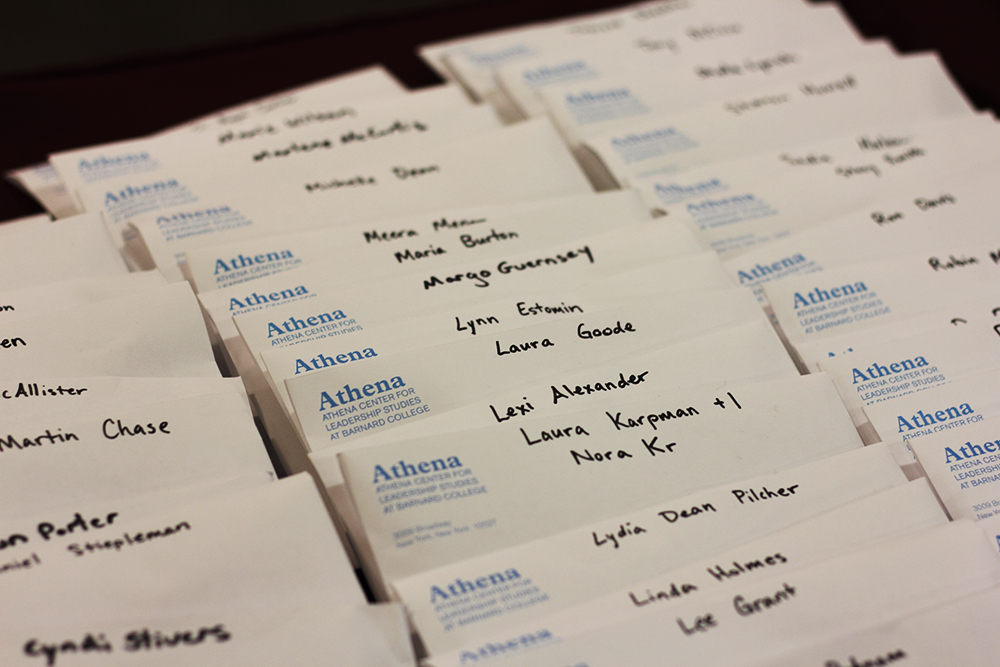 on
en
cAllister
Martin Chase
on Porter
niel Stiepleman
Cyndi Stivers
Marie Wilson
Athena
Marlene McCurtis
Athena
Michelle Dean
Athena
ATHENA CENTER FOR
LEADERSHIP STUDIES
AT BARNARD COLLEGE
Meera Menon
Athena
ATHENA CENTER FOR
Maria Burton
Athena
Margo Guernsey
Athena
ATHENA CENTER FOR
LEADERSHIP STUDIES
Lynn Estomin
Athena
Laura Goode
Athena
ATHENA CENTER FOR
LEADERSHIP STUDIES
AT BARNARD COLLEGE
Lexi Alexander
Laura Karpman +1
Nora Kr
Athena
ATHENA CENTER FOR
LEADERSHIP STUDIES
AT BARNARD COLLEGE
3009 Broadway
New York, New York, 10027
Lydia Dean Pilcher
Athena
ATHENA CENTER FOR
LEADERSHIP STUDIES
AT BARNARD COLLEGE
Linda Holmes
Athena
Lee Grant
Athena
Athena
Athena
Athena
Athena
Stacy Smith
Athena
Ron Davis
Athena
Robin M
Athena
ATHENA CENTER FOR
LEADERSHIP STUDIES
AT BARNARD COLLEGE
Athena
ATHENA CENTER FOR
LEADERSHIP STUDIES
Athena
ATHENA CENTER FOR
Athena
ATHENA CENTER
LEADERSHIP STU
AT BARNARD COL
3009 Broadway
New York